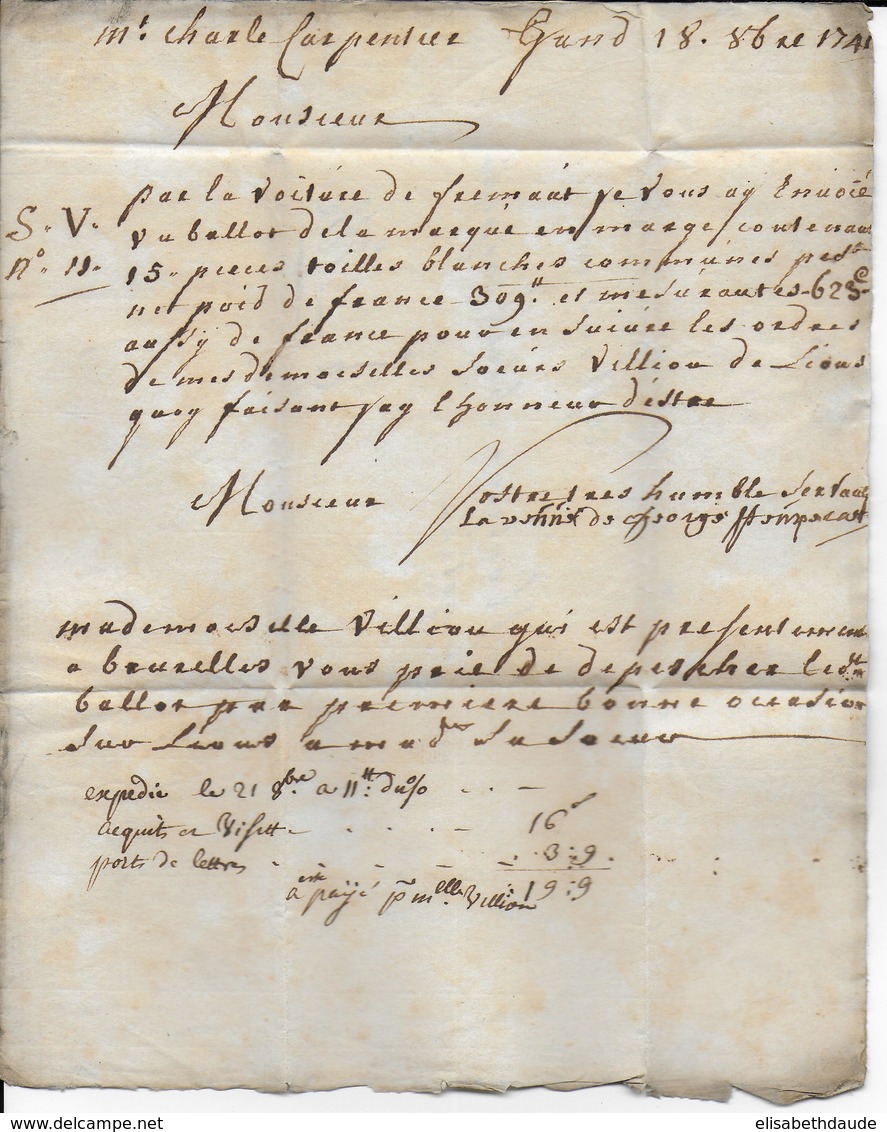 mr. Charle Carpentier Gand 18. 8bre 174
Monsieur
par la Voiture de fremaut je Vous ay Envoié
S. V. Vn ballot de la marque en marge contenant
no. 11. 15. pieces toilles blanches communes pest
net poid de france 309tt et mesurantes 623
aussy de france pour en suivre les ordres
de mes demoiselles soeurs Villiou de Lions
quoy faisant jay lhonneur destre
Monsieur Vostre tres humble Servant
La vefve de George
mademoiselle Villiou qui est presentement
a bruxelles vous prie de depescher ledt
ballot par premiere bonne occasion
sur Lions a madlle sa soeur
expedié le 21 8bre. a 11tt: du %
acquits et Visitt 16
ports de lettres 3:9.
19:9
a esté payé pr melle. Villiou
elisabethdaude